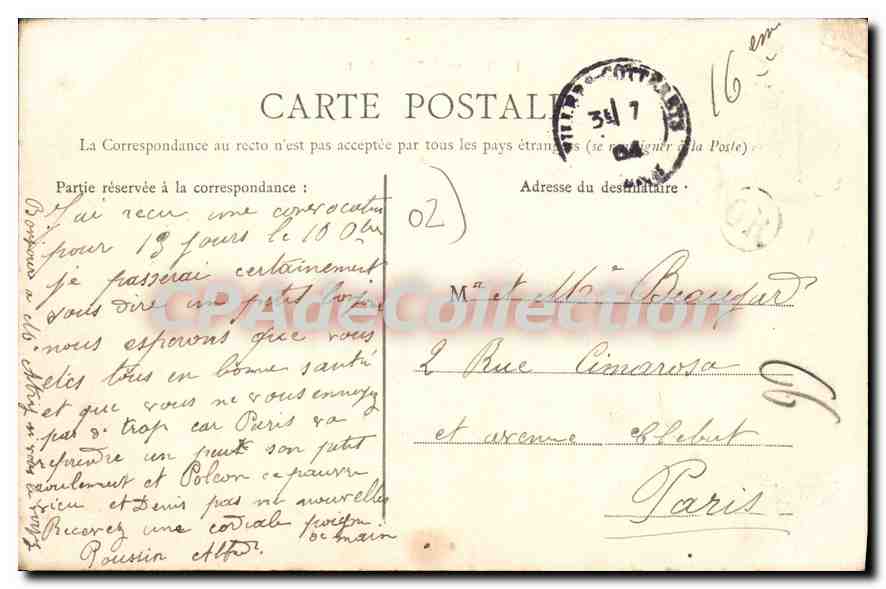 CARTE POSTALE
La Correspondance au recto n'est pas acceptée par tous les pays étrangers (se renseigner à la Poste)
Partie réservée à la correspondance :
J'ai recu une convocation
pour 13 jours le 10 8bre
je passerai certainement
vous dire un petit bonjour
nous esperons que vous
etes tous en bonne santé
et que vous ne vous ennuyez
pas de trop car Paris va
reprendre un peut son petit
roulement et Polcon ce pauvre
vieu et Denis pas de nouvelles
Recevez une cordiale poignee
de main
Poussin Alfred
Bonjour a Mr
Adresse du destinataire
Mr et Me Beaugard
2 Rue Cimarosa
et avenue Klebert
Paris
16 em
02)
VILLERS-COTTERETS
AISNE
04
CPAdeCollection